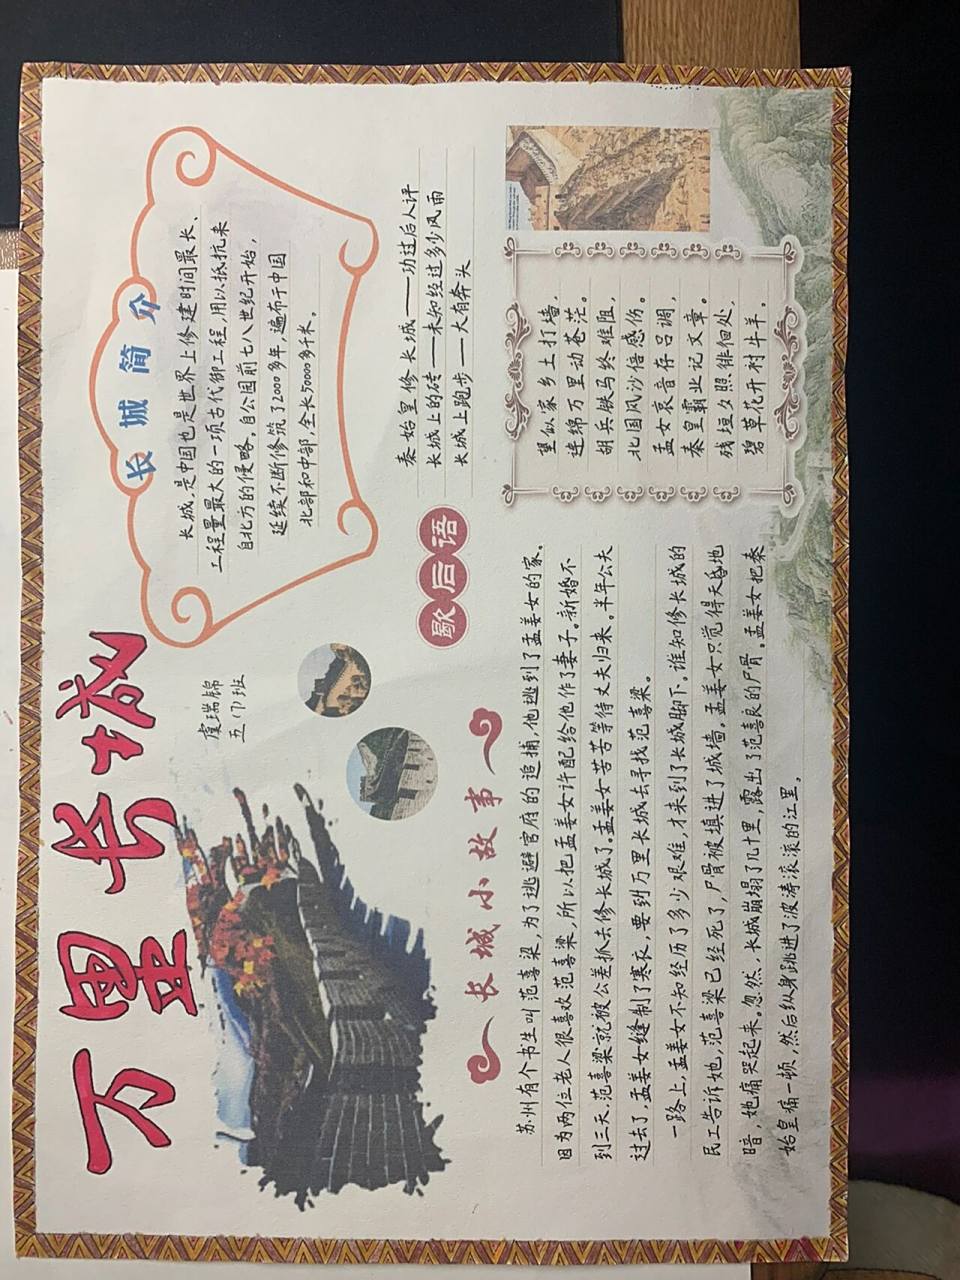 万里长城
虞瑞锦
五(1)班
长城简介
长城,是中国也是世界上修建时间最长、
工程量最大的一项古代御工程,用以抵抗来
自北方的侵略,自公园前七八世纪开始,
延续不断修筑了2000多年,遍布于中国
北部和中部,全长50000多千米。
歇后语
秦始皇修长城——功过后人评
长城上的砖——未知经过多少风雨
长城上跑步——大有奔头
长城小故事
苏州有个书生叫范喜梁,为了逃避官府的追捕,他逃到了孟姜女的家。
因为两位老人很喜欢范喜梁,所以把孟姜女许配给他作了妻子。新婚不
到三天,范喜梁就被公差抓去修长城了。孟姜女苦苦等待丈夫归来。半年公夫
过去了,孟姜女缝制了寒衣,要到万里长城去寻找范喜梁。
一路上,孟姜女不知经历了多少艰难,才来到了长城脚下。谁知修长城的
民工告诉她,范喜梁已经死了,尸骨被填进了城墙,孟姜女只觉得天昏地
暗,她痛哭起来。忽然,长城崩塌了几十里,露出了范喜良的尸骨。孟姜女把秦
始皇痛一顿,然后纵身跳进了波涛滚滚的江里。
望似家乡土打墙,
连绵万里动苍茫。
胡兵铁马终难阻,
北国风沙倍感伤。
孟女哀音存吕调,
秦皇霸业记文章。
残垣夕照徘徊处,
碧草花开衬牛羊.